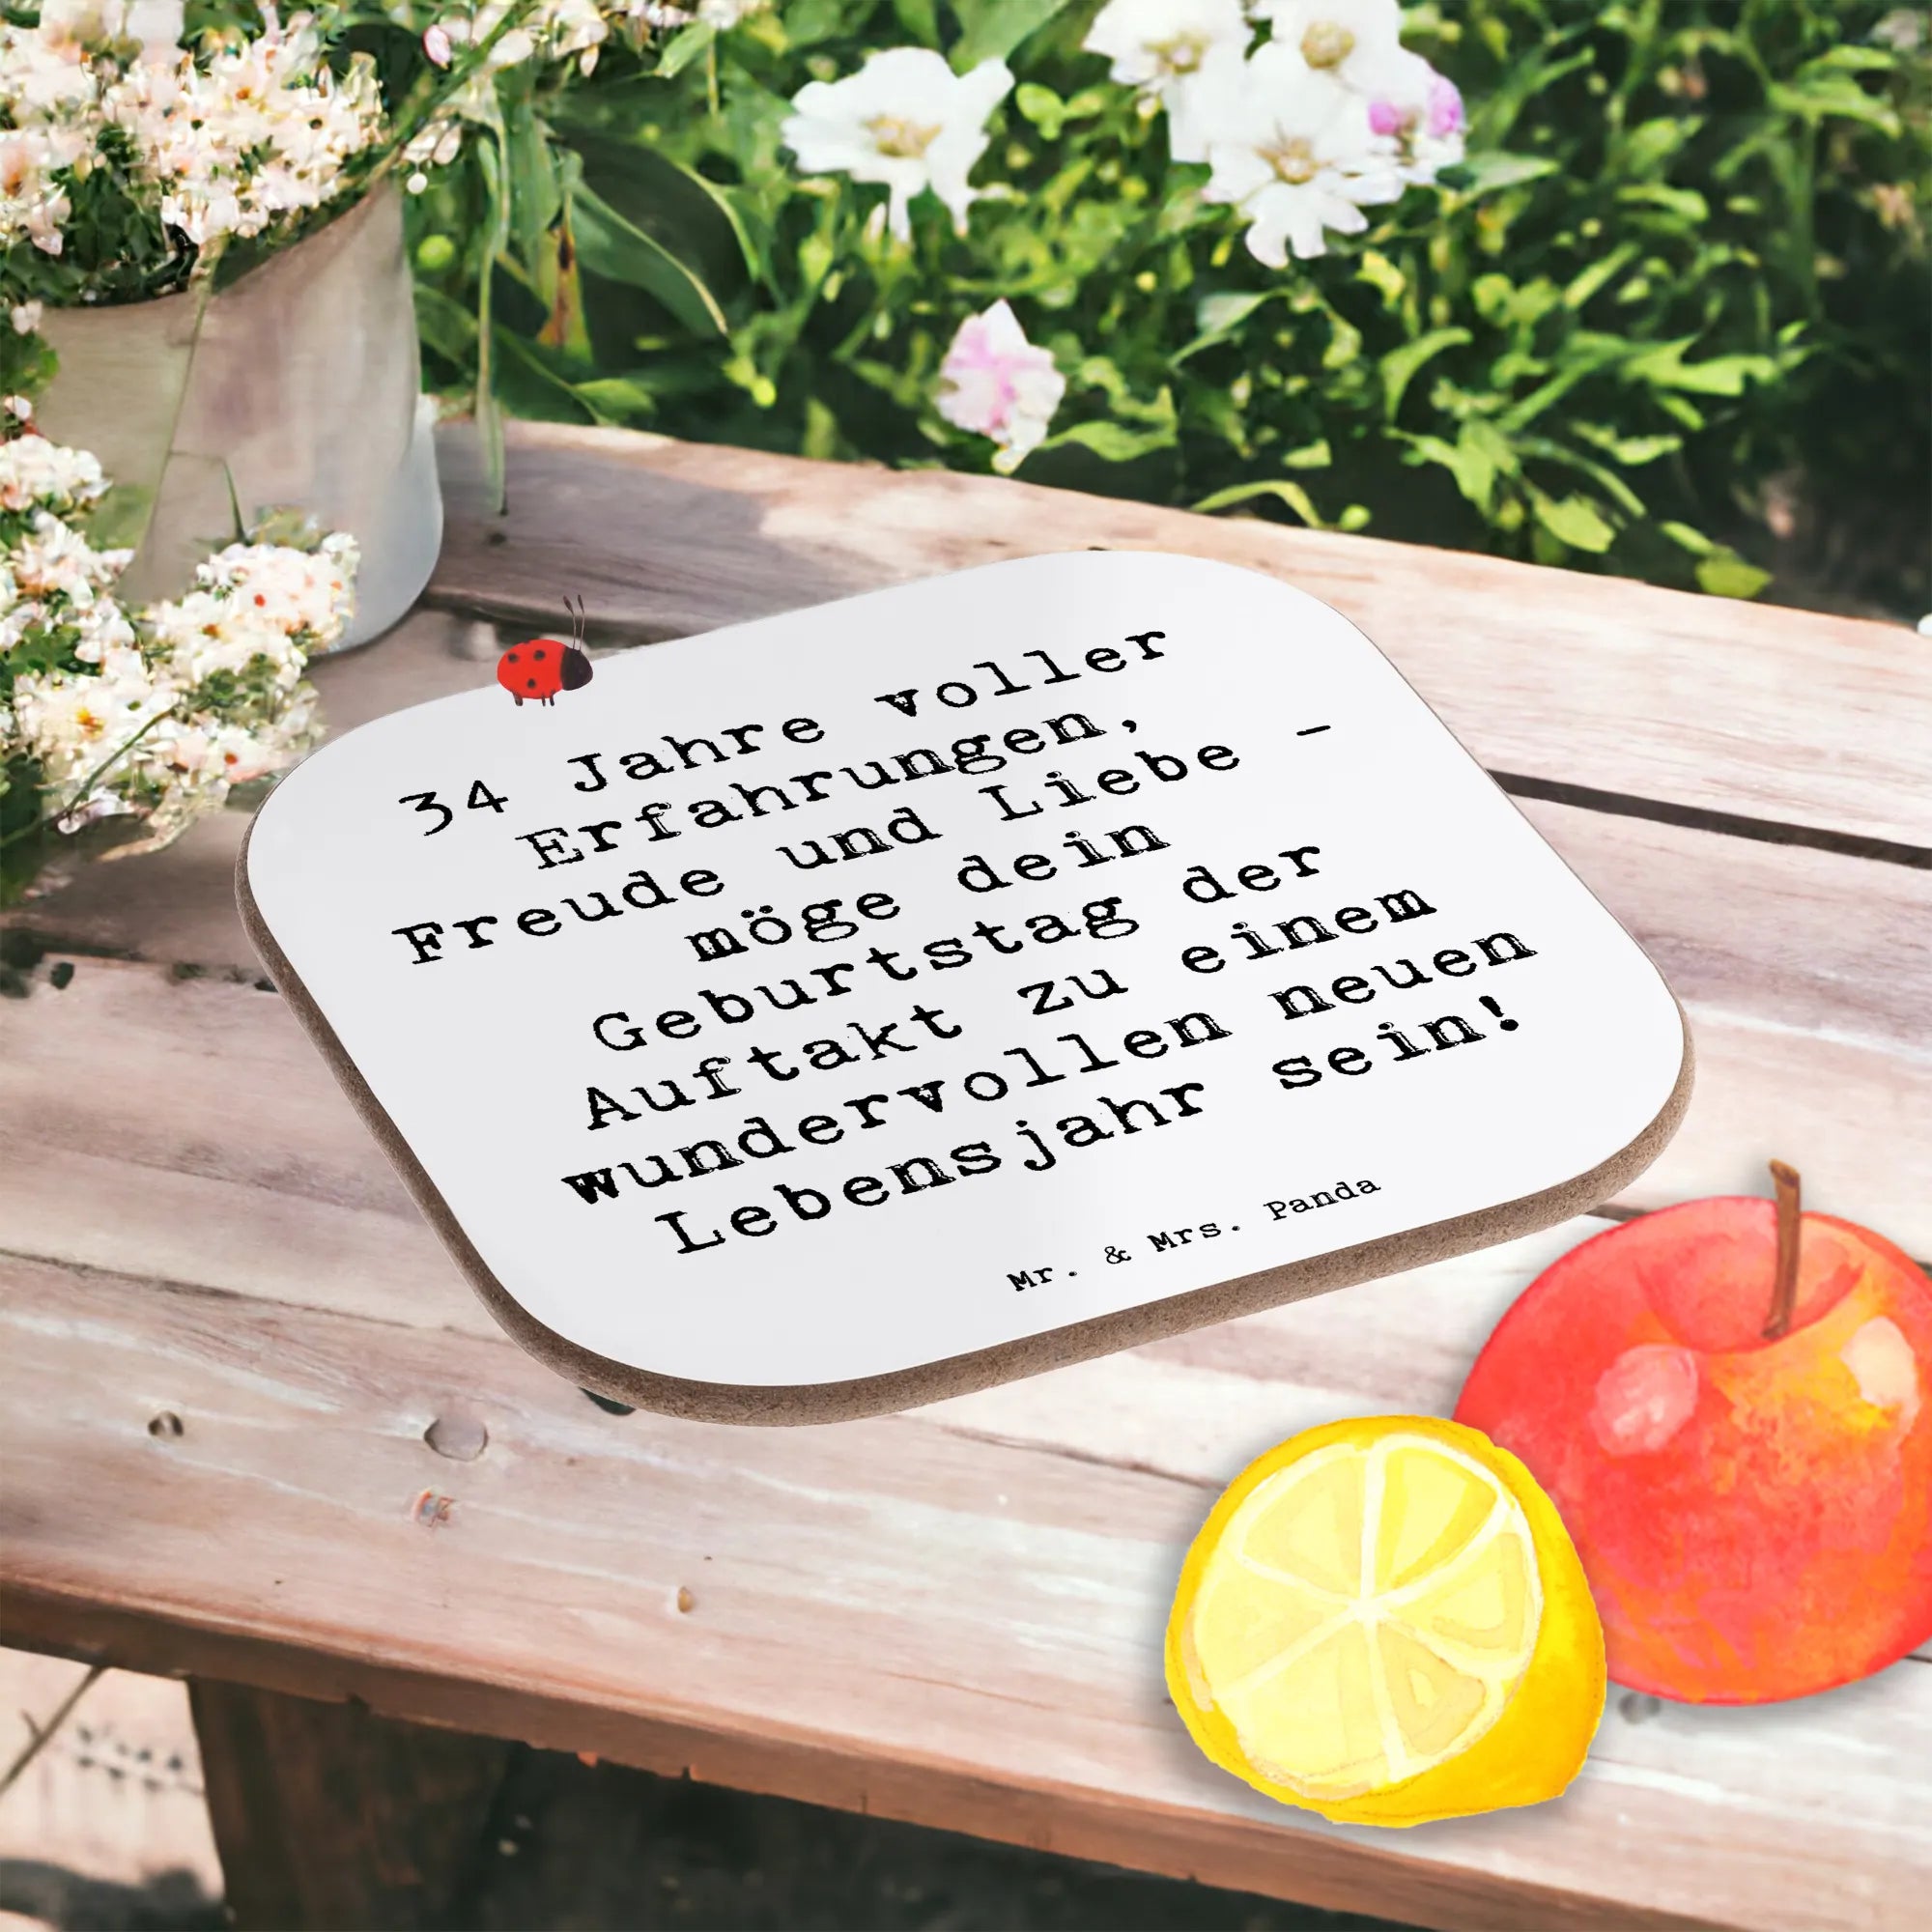 34 Jahre voller
Erfahrungen,
Freude und Liebe -
möge dein
Geburtstag der
Auftakt zu einem
wundervollen neuen
Lebensjahr sein!
Mr. & Mrs. Panda